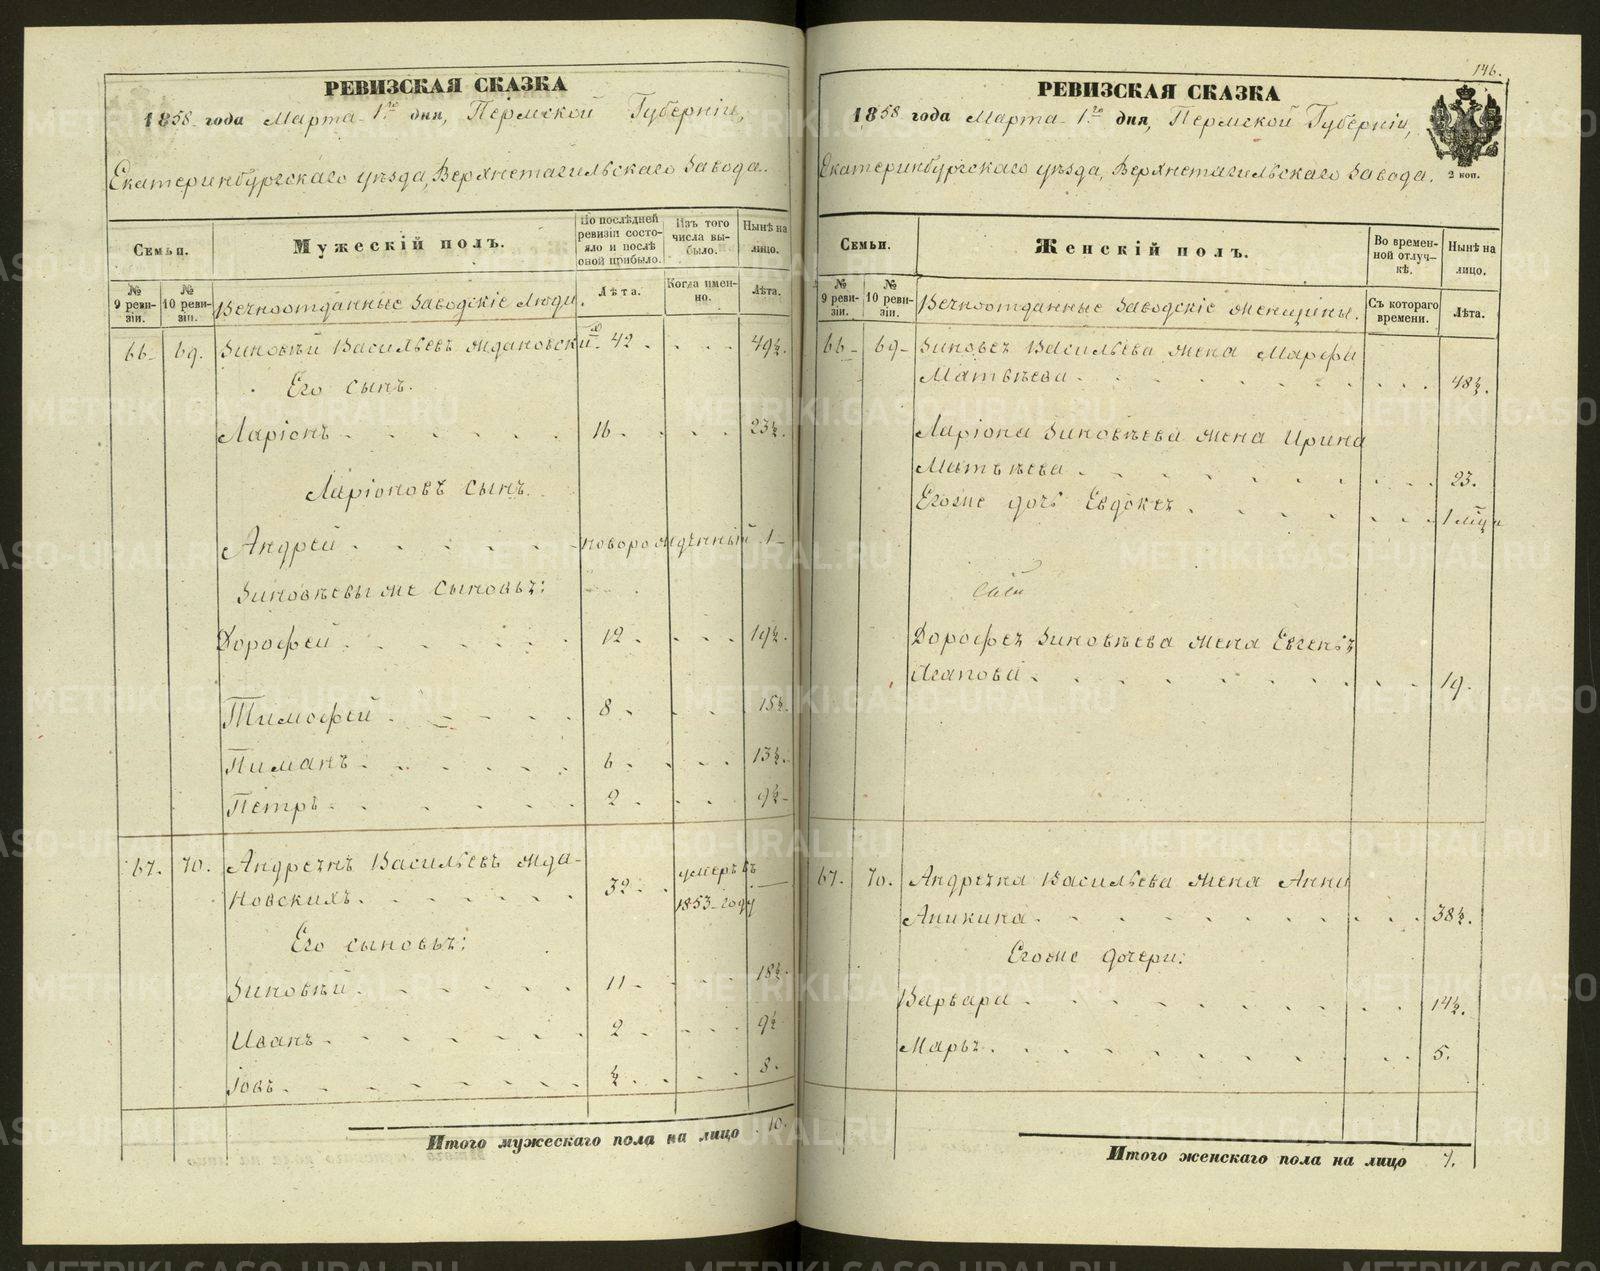 РЕВИЗСКАЯ СКАЗКА
1858 года Марта 1го дня, Пермской Губерніи,
Екатеринбургскаго уѣзда, Верхнетагильскаго Завода.
Семьи.
Мужескій полъ.
По послѣдней ревизіи состояло и послѣ оной прибыло.
Изъ того числа выбыло.
Нынѣ на лицо.
№ 9 ревизіи.
№ 10 ревизіи.
Вечноотданные Заводскіе Люди.
Лѣта.
Когда именно.
Лѣта.
66. 69. Зиновѣй Васильевъ Ждановскій 42 49½.
Его сынъ.
Ларіонъ 16. 23½.
Ларіоновъ сынъ.
Андрей новорожденный 1
Зиновѣевы же сыновья:
Дорофей 12. 19½.
Тимофей 8. 15½.
Пиманъ 6. 13½.
Петръ 2. 9½
67. 70. Андреянъ Васильевъ Жда-
новскихъ. 32. умеръ въ 1853 году —
Его сыновья:
Зиновѣй 11. 18½.
Иванъ 2. 9½
Іовъ ½. 8.
Итого мужескаго пола на лицо 10.
146.
РЕВИЗСКАЯ СКАЗКА
1858 года Марта 1го дня, Пермской Губерніи,
Екатеринбургскаго уѣзда, Верхнетагильскаго Завода.
2 коп.
Семьи.
Женскій полъ.
Во временной отлучкѣ.
Нынѣ на лицо.
№ 9 ревизіи.
№ 10 ревизіи.
Вечноотданные Заводскіе женщины.
Съ котораго времени.
Лѣта.
66 69 Зиновья Васильева жена Марфа
Матвѣева 48½.
Ларіона Зиновѣева жена Ирина
Матвѣева 23.
Его же дочь Евдокея 1
Дорофея Зиновѣева жена Евгенья
Агапова 19.
67. 70. Андреяна Васильева жена Анна
Аникина. 38½.
Его же дочери:
Варвара 14½.
Марья. 5.
Итого женскаго пола на лицо 7.
METRIKI.GASO-URAL.RU